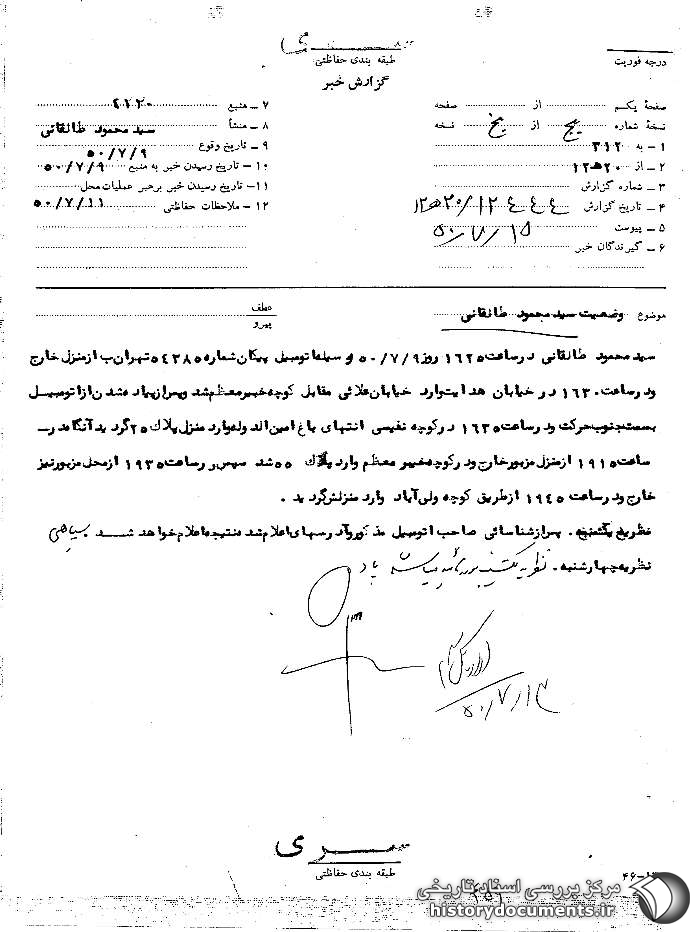 طبقه بندی حفاظتی
گزارش خبر
درجه فوریت
صفحهٔ یکم از صفحه
نسخهٔ شماره از نسخه
۱ – به ۳۱۲
۲ – از ۲۰ ه ۱۲
۳ – شماره گزارش
۴ – تاریخ گزارش ۱۲۴۴۴ / ۲۰ ه ۱۲
۵ – پیوست ۵۰/۷/۱۵
۶ – گیرندگان خبر
۷ – منبع
۸ – منشأ سید محمود طالقانی
۹ – تاریخ وقوع ۵۰/۷/۹
۱۰ – تاریخ رسیدن خبر به منبع ۵۰/۷/۹
۱۱ – تاریخ رسیدن خبر برهبر عملیات محل
۱۲ – ملاحظات حفاظتی ۵۰/۷/۱۱
موضوع وضعیت سید محمود طالقانی
عطف
پیرو
سید محمود طالقانی در ساعت ۱۶۲۵ روز ۵۰/۷/۹ وسیله اتومبیل پیکان شماره ۵۴۳۸۵ تهران ب از منزل خارج
و در ساعت ۱۶۳۰ در خیابان هدایت وارد خیابان علائی مقابل کوچه خیبر معظم شد و پس از پیاده شدن از اتومبیل
بسمت جنوب حرکت و در ساعت ۱۶۳۵ در کوچه نفیسی انتهای باغ امین الدوله وارد منزل پلاک ۲۵ گردید آنگاه در
ساعت ۱۹۱۵ از منزل مزبور خارج و در کوچه خیبر معظم وارد پلاک ۵۵ شد سپس در ساعت ۱۹۳۵ از محل مزبور نیز
خارج و در ساعت ۱۹۴۵ از طریق کوچه ولی آباد وارد منزلش گردید .
نظریه یکشنبه . پس از شناسائی صاحب اتومبیل مذکور و آدرسهای اعلام شد نتیجه اعلام خواهد شد
نظریه چهارشنبه . نظریه یکشنبه مورد تأیید میباشد
۵۰/۷/۱۳
سری
طبقه بندی حفاظتی
مرکز بررسی اسناد تاریخی
historydocuments.ir